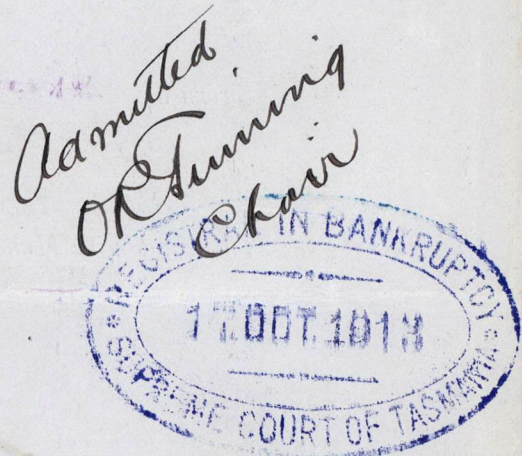 Admitted
Chair
REGISTRAR IN BANKRUPTCY
17 OCT. 1913
SUPREME COURT OF TASMANIA